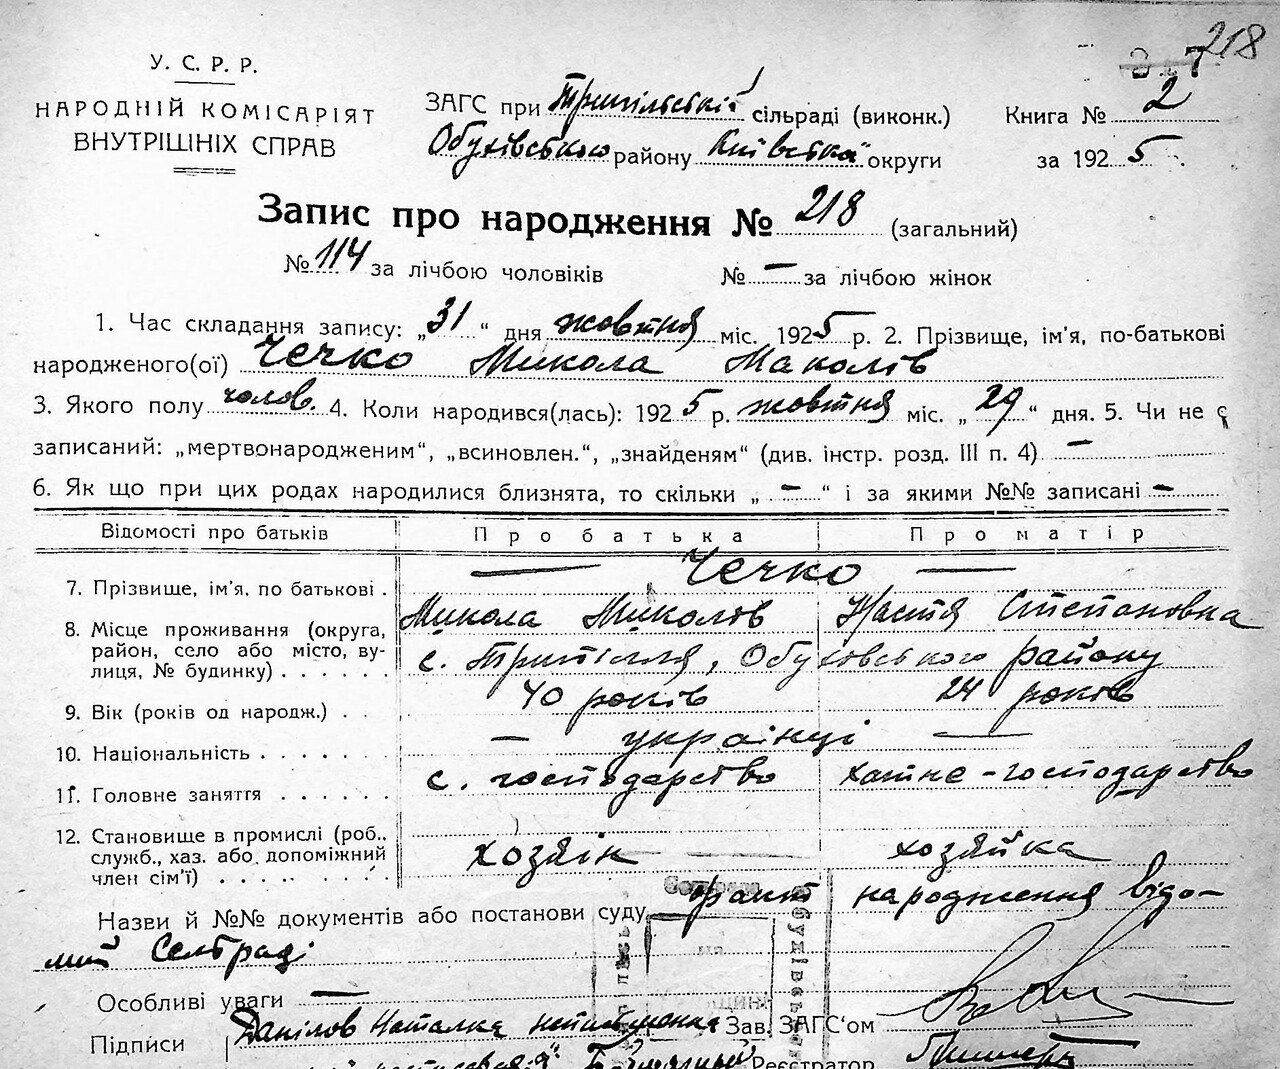 218
У. С. Р. Р.
НАРОДНІЙ КОМІСАРІЯТ
ВНУТРІШНІХ СПРАВ
ЗАГС при Трипільській сільраді (виконк.)
Книга № 2
Обухівського району Київська округи
за 1925
Запис про народження № 218 (загальний)
№ 114 за лічбою чоловіків № — за лічбою жінок
1. Час складання запису: „31“ дня жовтня міс. 1925 р. 2. Прізвище, ім'я, по-батькові
народженого(ої) Чечко Микола Миколів
3. Якого полу чолов. 4. Коли народився(лась): 1925 р. жовтня міс. „29“ дня. 5. Чи не є
записаний: „мертвонародженим“, „всиновлен.“, „знайденям“ (див. інстр. розд. III п. 4) —
6. Як що при цих родах народилися близнята, то скільки „ — “ і за якими №№ записані —
Відомості про батьків Про батька Про матір
7. Прізвище, ім'я, по батькові . — Чечко —
Микола Миколів Настя Степановка
8. Місце проживання (округа,
район, село або місто, вулиця, № будинку) . . . . . . с. Трипілля, Обухівського району
9. Вік (років од народж.) . . 40 років 24 років
10. Національність . . . . . . — українці —
11. Головне заняття . . . . . . с. господарство хатнє-господарство
12. Становище в промислі (роб.,
служб., хаз. або допоміжний
член сім'ї) . . . . . . . . хозяїн хозяйка
Назви й №№ документів або постанови суду факт народження відо-
мий Сельраді
Особливі уваги —
Підписи Данілов Наталка неписьменна Зав. ЗАГС'ом
Реєстратор